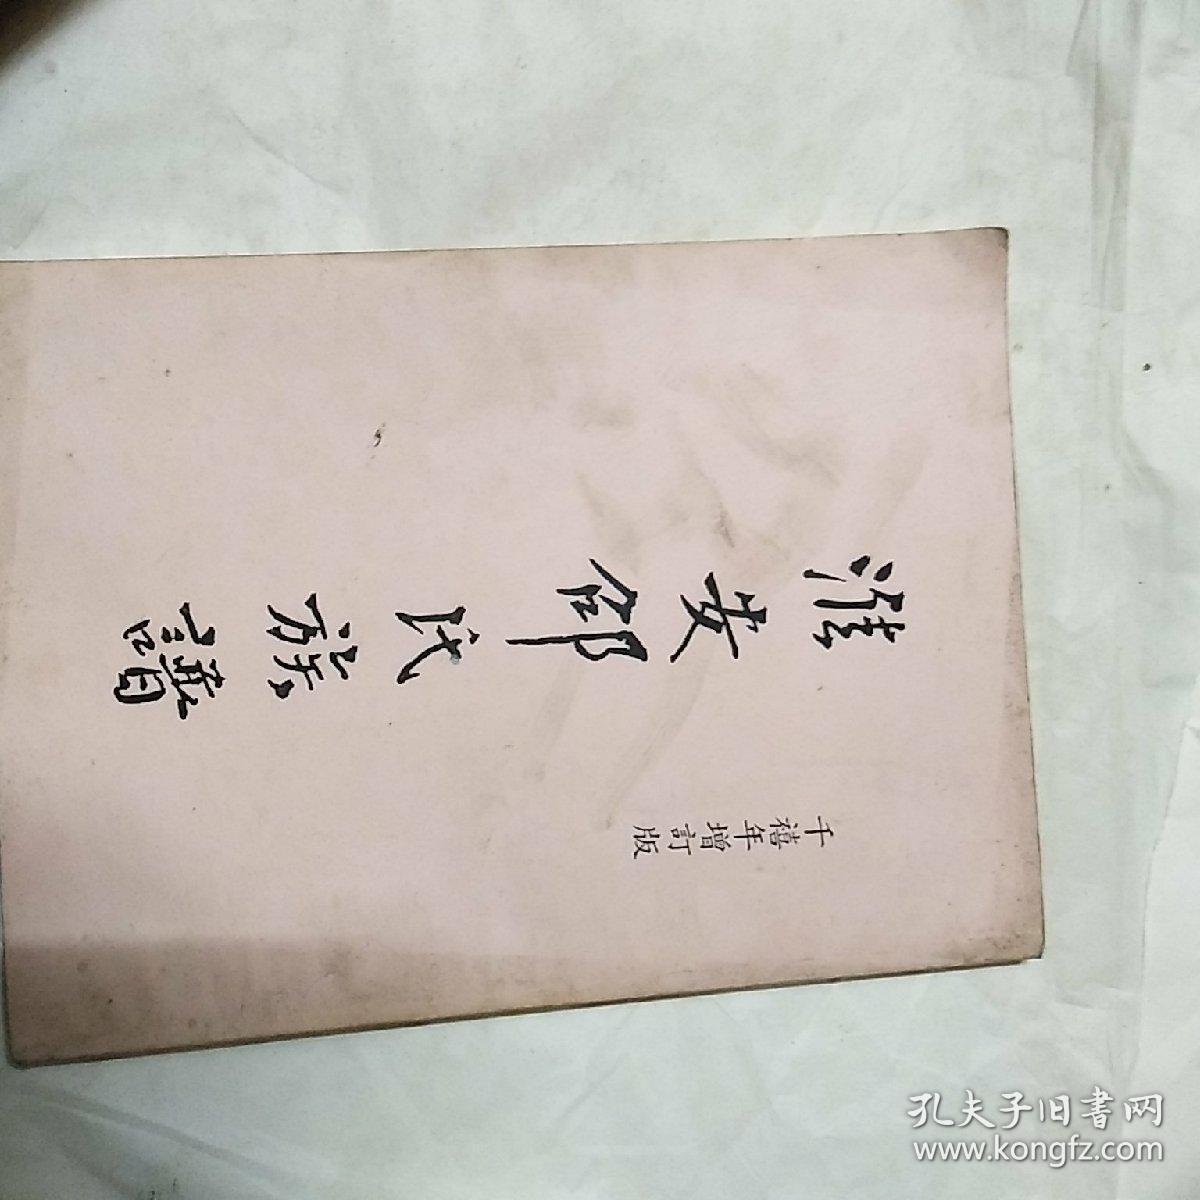 淮安邵氏族譜
千禧年增訂版
孔夫子旧書网
www.kongfz.com